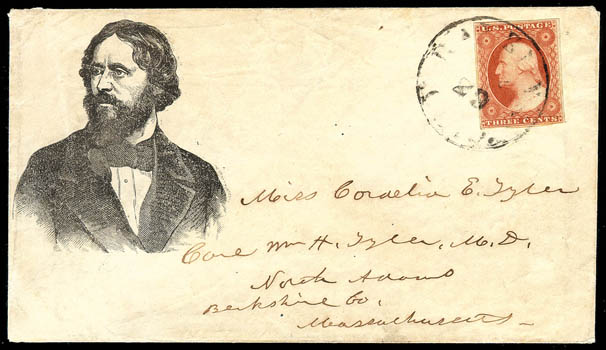 U.S. POSTAGE
THREE CENTS
Miss Cordelia E. Tyler
Care Wm H. Tyler, M.D.
North Adams
Berkshire Co,
Massachusetts